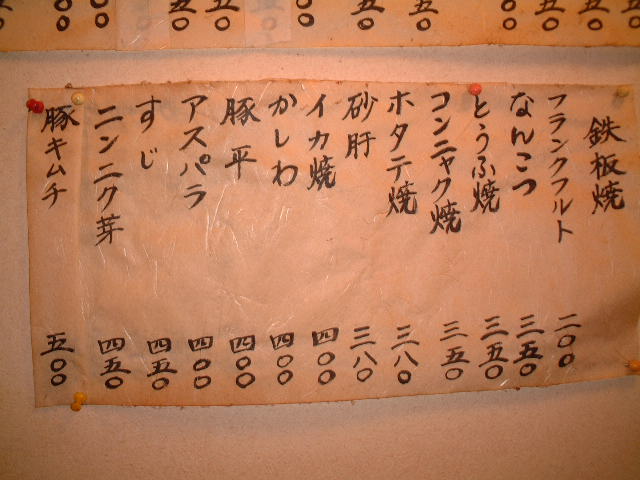 鉄板焼
フランクフルト 二〇〇
なんこつ 三五〇
とうふ焼 三五〇
コンニャク焼 三五〇
ホタテ焼 三八〇
砂肝 三八〇
イカ焼 四〇〇
かしわ 四〇〇
豚平 四〇〇
アスパラ 四〇〇
すじ 四五〇
ニンニク芽 四五〇
豚キムチ 五〇〇